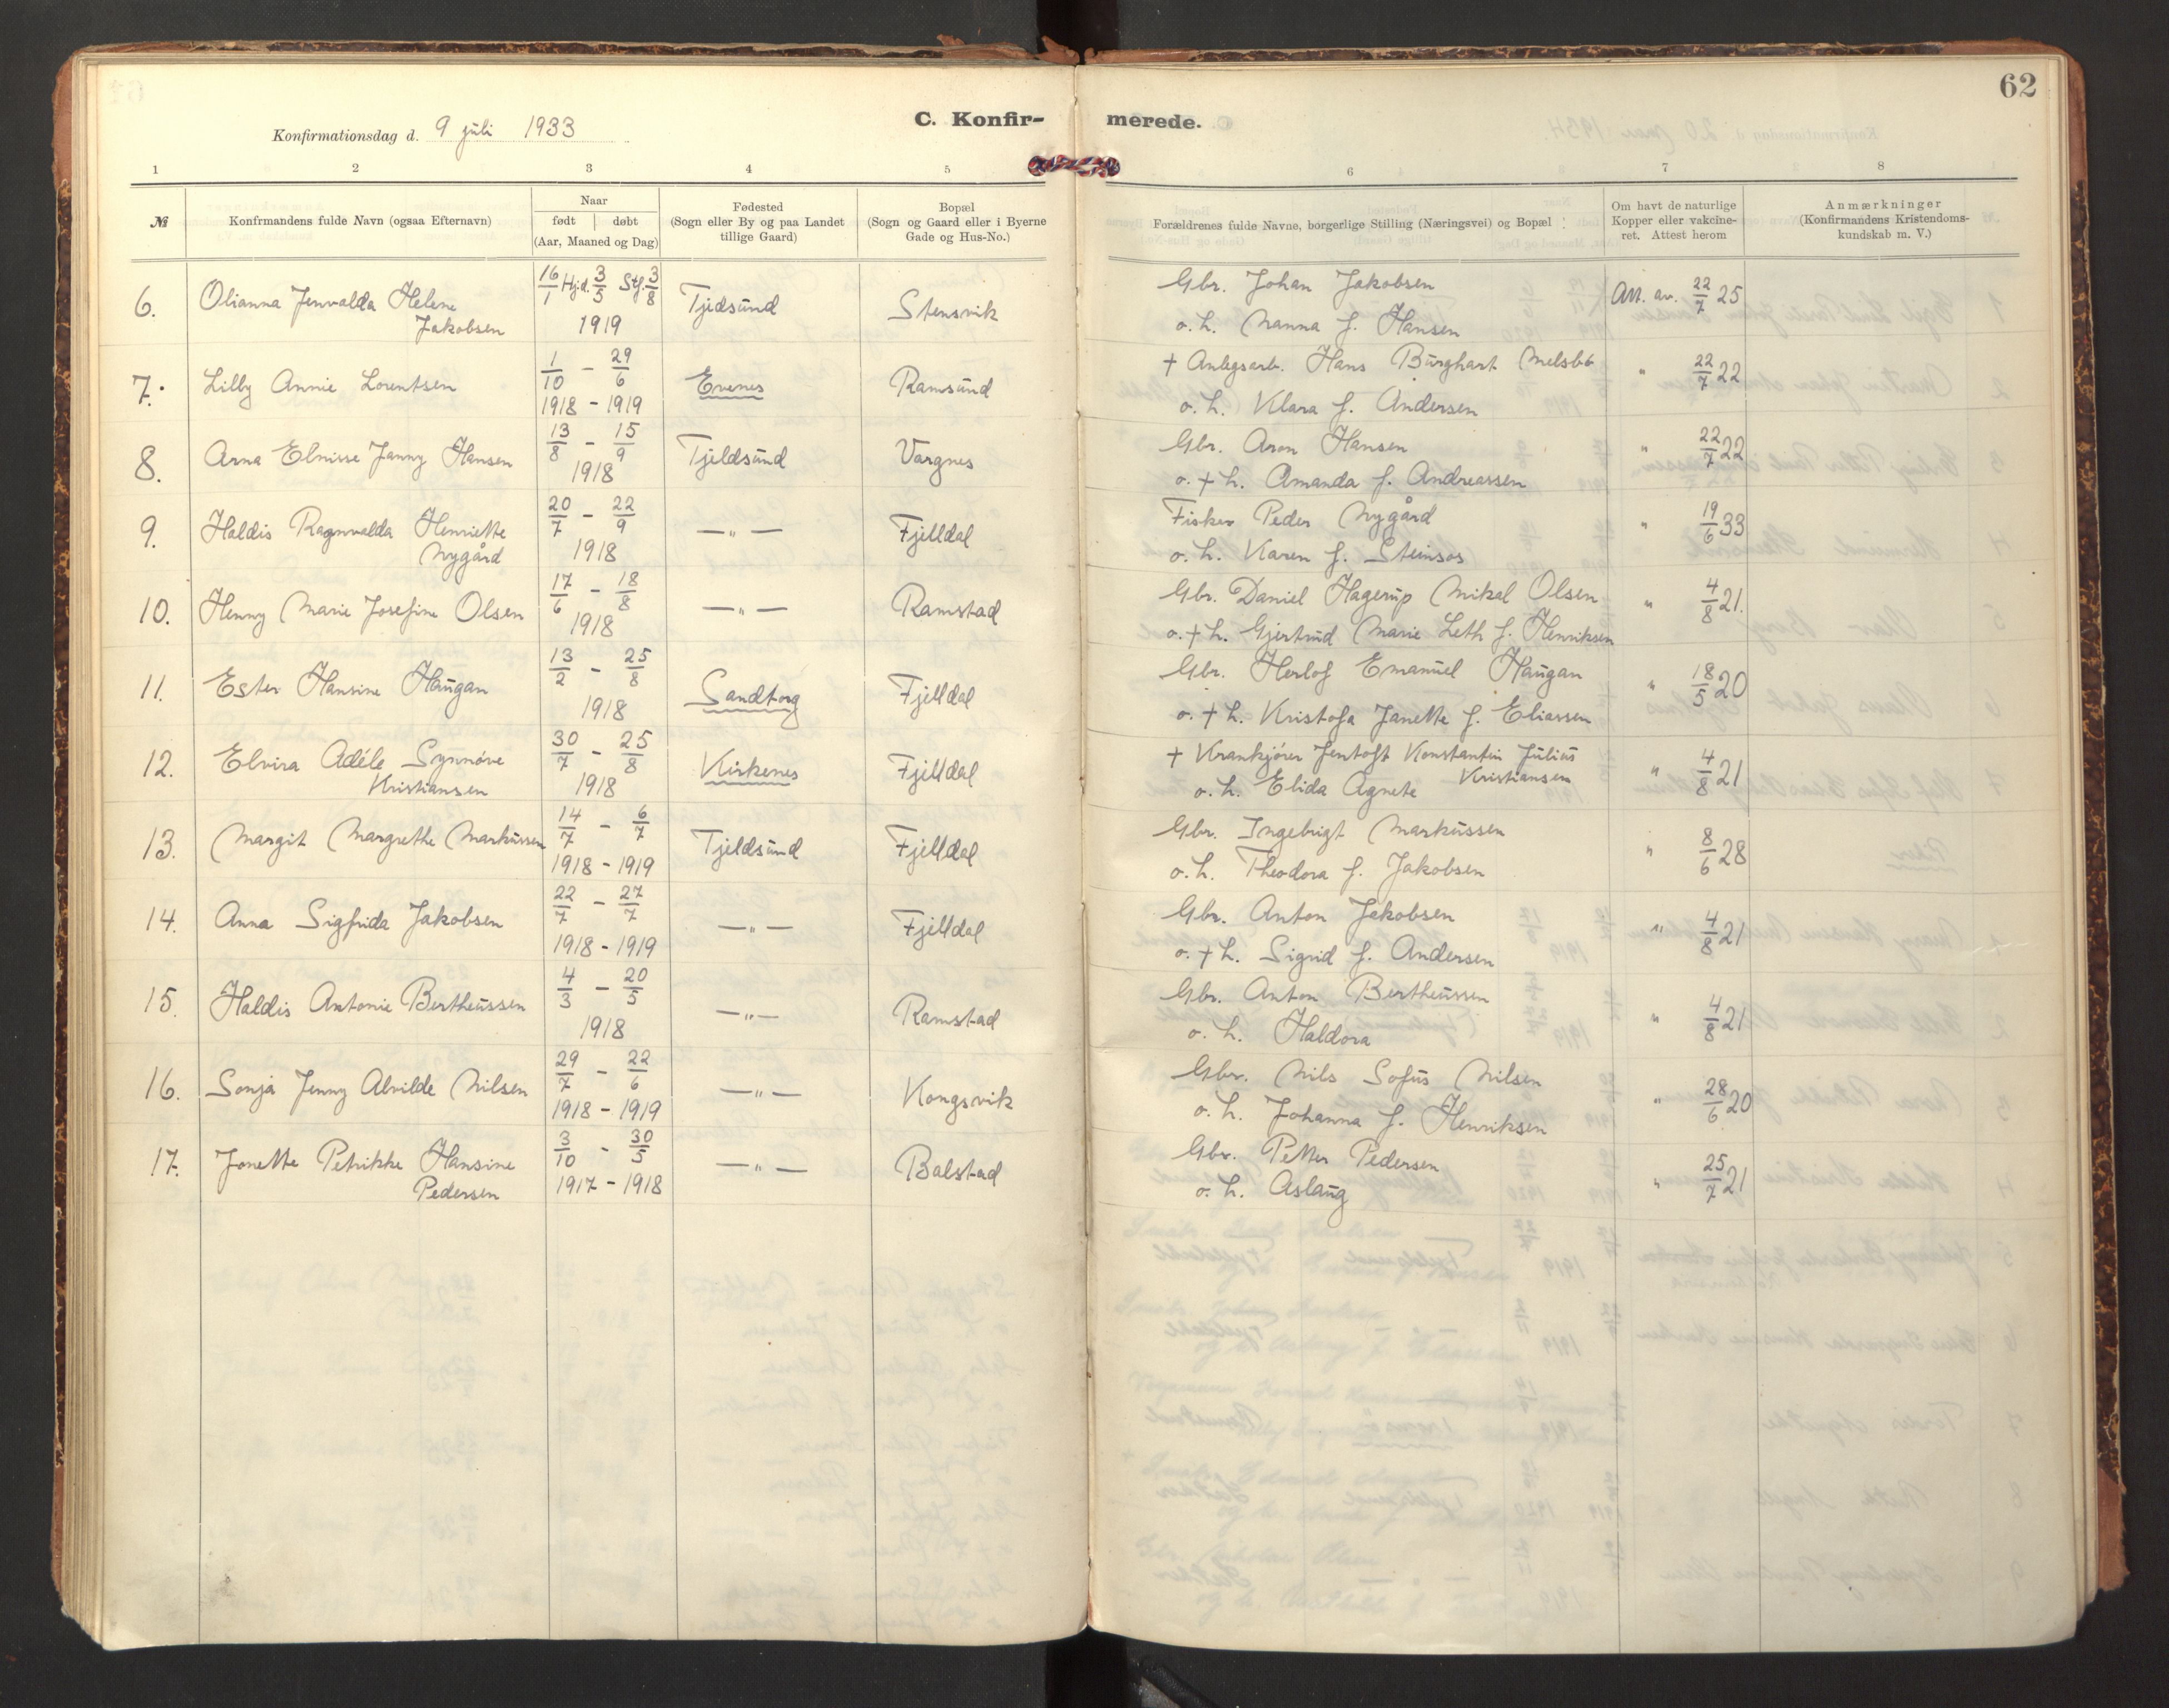 62
Konfirmationsdag d. 9 juli 1933
C. Konfir- merede.
1 2 3 4 5 6 7 8
№
Konfrmandens fulde Navn (ogsaa Efternavn)
Naar
født | døbt
(Aar, Maaned og Dag)
Fødested
(Sogn eller By og paa Landet
tillige Gaard)
Bopæl
(Sogn og Gaard eller i Byerne
Gade og Hus-No.)
Forældrenes fulde Navne, borgerlige Stilling (Næringsvei) og Bopæl
Om havt de naturlige
Kopper eller vakcine-
ret. Attest herom
Anmærkninger
(Konfirmandens Kristendoms-
kundskab m. V.)
6. Olianna Jenvalda Helene 16/1 Hjd. 3/5 Stf. 3/8 Tjedsund Stensvik Gbr. Johan Jakobsen Att. av. 22/7 25
Jakobsen 1919 o. h. Nanna f. Hansen
7. Lilly Annie Lorentsen 1/10 - 29/6 Evenes Ramsund + Anlegsarb. Hans Burghart " 22/7 22
1918 - 1919 o. h. Klara f. Andersen
8. Arna Elnisse Janny Hansen 13/8 - 15/9 Tjeldsund Vargnes Gbr. Aron Hansen " 22/7 22
1918 o. + h. Amanda f. Andreassen
9. Haldis Ragnvalda Henriette 20/7 - 22/9 — " — Fjelldal Fisker Peder Nygård " 19/6 33
Nygård 1918 o. h. Karen f. Steinsos
10. Henny Marie Josefine Olsen 17/6 - 18/8 — " — Ramstad Gbr. Daniel Hagerup Mikal Olsen " 4/8 21.
1918 o. + h. Gjertrud Marie Leth f. Henriksen
11. Ester Hansine Haugan 13/2 - 25/8 Sandtorg Fjelldal Gbr. Herlof Emanuel Haugan " 18/5 20
1918 o. + h. Kristofa Janette f. Eliassen
12. Elvira Adéle Synnøve 30/7 - 25/8 Kirkenes Fjelldal + Krankjører Jentoft Konstantin Julius " 4/8 21
Kristiansen 1918 o. h. Elida Agnete Kristiansen
13. Margit Margrethe Markussen 14/7 - 6/7 Tjeldsund Fjelldal Gbr. Ingebrigt Markussen " 8/6 28
1918 - 1919 o. h. Theodora f. Jakobsen
14. Anna Sigfrida Jakobsen 22/7 - 27/7 — " — Fjelldal Gbr. Anton Jakobsen " 4/8 21
1918 - 1919 o. + h. Sigrid f. Andersen
15. Haldis Antonie Bertheussen 4/3 - 20/5 — " — Ramstad Gbr. Anton Bertheussen " 4/8 21
1918 o. h. Haldora
16. Sonja Jenny Alvilde Nilsen 29/7 - 22/6 — " — Kongsvik Gbr. Nils Sofus Nilsen " 28/6 20
1918 - 1919 o. h. Johanna f. Henriksen
17. Jonette Petrikke Hansine 3/10 - 30/5 — " — Balstad Gbr. Petter Pedersen " 25/7 21
Pedersen 1917 - 1918 o. h. Aslaug